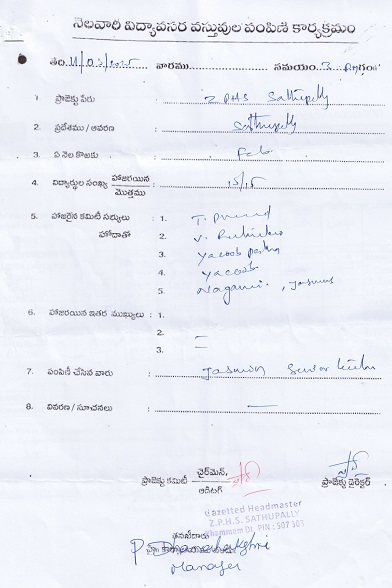 నెలవారి విద్యావసర వస్తువుల పంపిణి కార్యక్రమం
తేది. 11/03/2015 వారము. సమయం. 3 PM గం॥
1 ప్రాజెక్టు పేరు : Z.P.H.S Sathupally
2. ప్రదేశము / ఆవరణ : Sathupally
3. ఏ నెల కొఱకు : Feb
4. విద్యార్థుల సంఖ్య హాజరయిన / మొత్తము : 15/15
5. హాజరైన కమిటీ సభ్యులు : 1. T.
హోదాతో 2. V.
3. Yacoob pasha
4. Yacoob
5. Nagami. , Jasmin
6. హాజరయిన ఇతర ముఖ్యులు : 1.
2. —
3. —
7. పంపిణీ చేసిన వారు : Jasmin
8. వివరణ / సూచనలు : —
ప్రాజెక్టు కమిటీ ఛైర్‌మెన్, / ఆడిటర్
ప్రాజెక్టు డైరెక్టర్
Gazetted Headmaster
Z.P.H.S. SATHUPALLY
Khammam Dt, PIN : 507 303
P. Dhanalakshmi
Manager